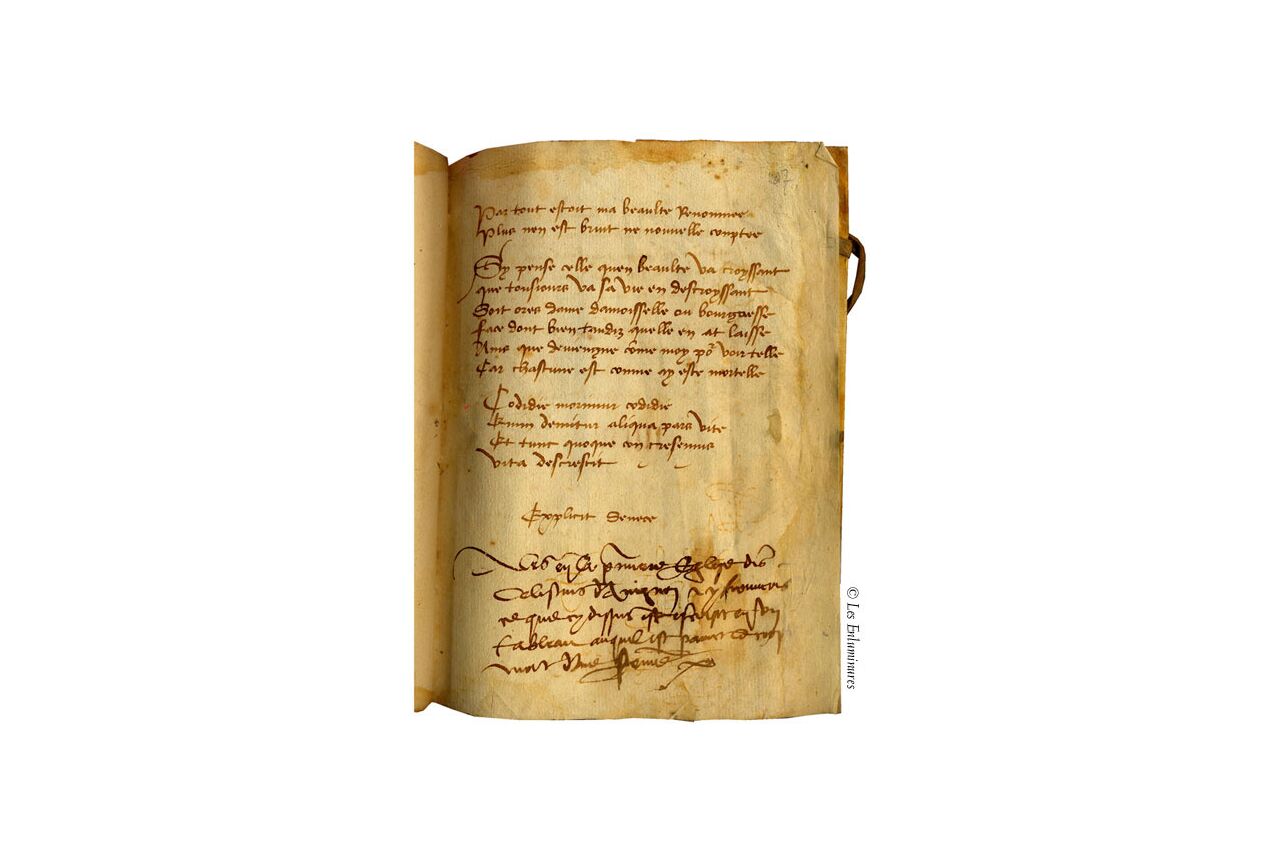 107
Par tout estoit ma beaulte Renommee
Plus nen est bruut ne nouvelle comptee
Sy pense celle quen beaulte va croyssant
que tousiours va sa vie en descroyssant
Soit ores dame damoisselle ou bourgoesse
face dont bien tandiz quelle en at laisse
Ains que deviengne come moy po² voir telle
Car chascune est comme ay este mortelle
Codidie morimur codidie
Enim demitur aliqua pars vite
Et tunc quoque con cresemus
vita descrescit
Explicit Senece
en la Eglise des
celestins d'Avignon
ce que cy dessus est escript en un
tableau auquel est
© Les Enluminures